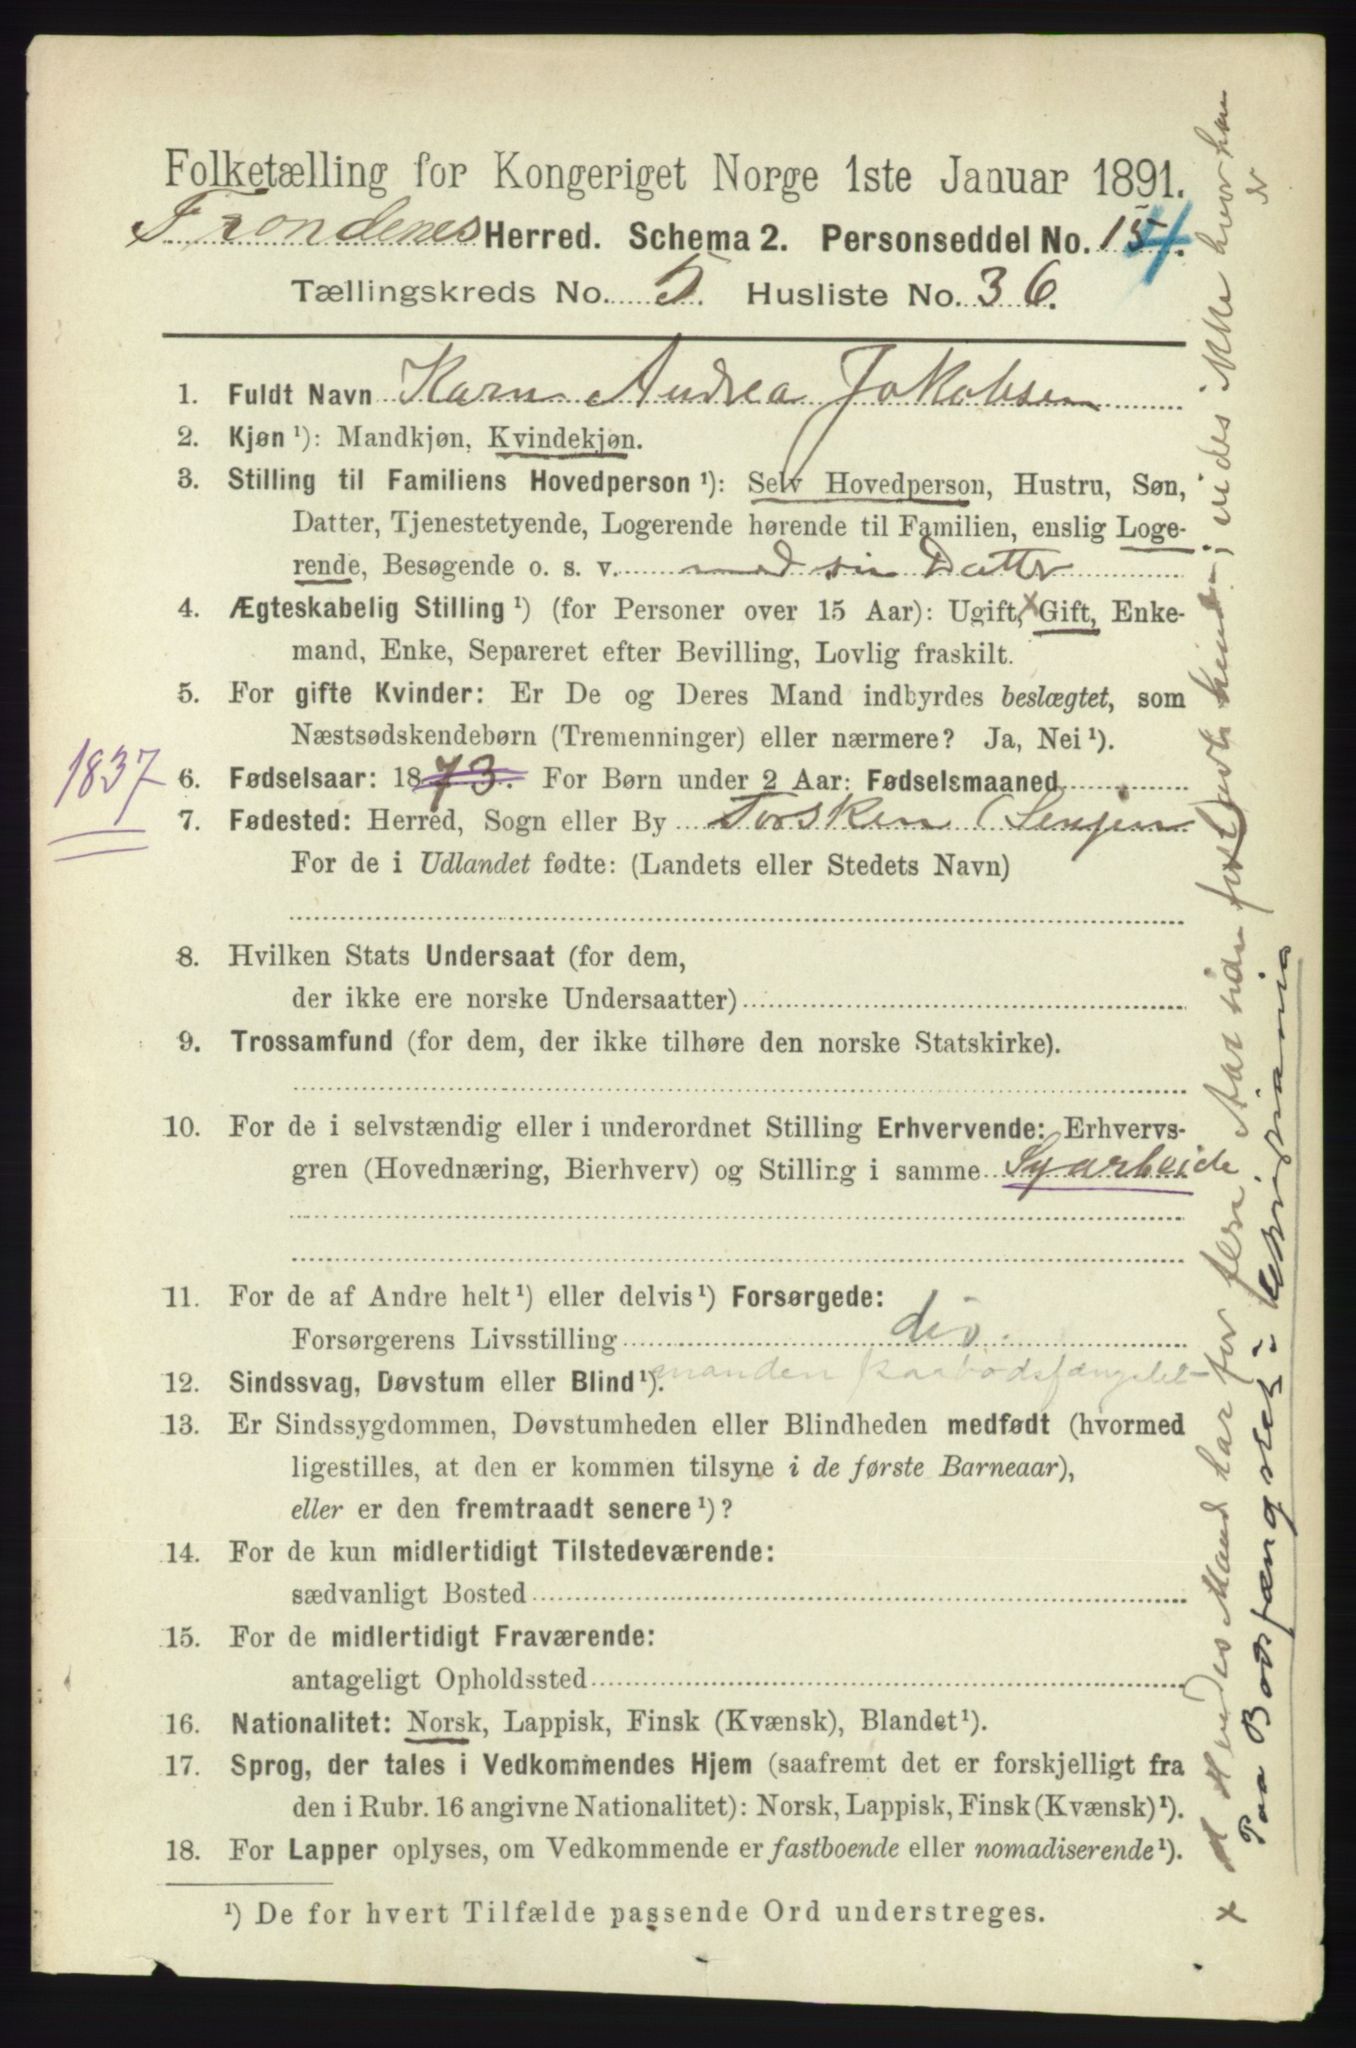 Folketælling for Kongeriget Norge 1ste Januar 1891.
Trondenes Herred. Schema 2. Personseddel No. 154.
Tællingskreds No. 5. Husliste No. 36.
1. Fuldt Navn Karn Andrea Jakobsen
2. Kjøn ¹): Mandkjøn, Kvindekjøn.
3. Stilling til Familiens Hovedperson ¹): Selv Hovedperson, Hustru, Søn,
Datter, Tjenestetyende, Logerende hørende til Familien, enslig Loge-
rende, Besøgende o. s. v. med sin Datter
4. Ægteskabelig Stilling ¹) (for Personer over 15 Aar): Ugift, × Gift, Enke-
mand, Enke, Separeret efter Bevilling, Lovlig fraskilt.
5. For gifte Kvinder: Er De og Deres Mand indbyrdes beslægtet, som
Næstsødskendebørn (Tremenninger) eller nærmere? Ja, Nei ¹).
1837
6. Fødselsaar: 1873. For Børn under 2 Aar: Fødselsmaaned
7. Fødested: Herred, Sogn eller By Torsken (Senjen)
For de i Udlandet fødte: (Landets eller Stedets Navn)
8. Hvilken Stats Undersaat (for dem,
der ikke ere norske Undersaatter)
9. Trossamfund (for dem, der ikke tilhøre den norske Statskirke).
10. For de i selvstændig eller i underordnet Stilling Erhvervende: Erhvervs-
gren (Hovednæring, Bierhverv) og Stilling i samme Syarbeide
11. For de af Andre helt ¹) eller delvis ¹) Forsørgede:
Forsørgerens Livsstilling div.
manden paa bodsfængslet
12. Sindssvag, Døvstum eller Blind ¹).
13. Er Sindssygdommen, Døvstumheden eller Blindheden medfødt (hvormed
ligestilles, at den er kommen tilsyne i de første Barneaar),
eller er den fremtraadt senere ¹)?
14. For de kun midlertidigt Tilstedeværende:
sædvanligt Bosted
15. For de midlertidigt Fraværende:
antageligt Opholdssted
16. Nationalitet: Norsk, Lappisk, Finsk (Kvænsk), Blandet ¹).
17. Sprog, der tales i Vedkommendes Hjem (saafremt det er forskjelligt fra
den i Rubr. 16 angivne Nationalitet): Norsk, Lappisk, Finsk (Kvænsk) ¹).
18. For Lapper oplyses, om Vedkommende er fastboende eller nomadiserende ¹).
¹) De for hvert Tilfælde passende Ord understreges.
× Hendes Mand har for flere Aar siden forladt hende; vides ikke hvor han
er
Paa Bodsfængslet i Kristiania